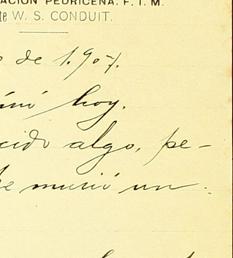 ACION PEDRICENA. F. I. M.
te W. S. CONDUIT.
o de 1.907.
hoy.
cido algo, pe-
murió un